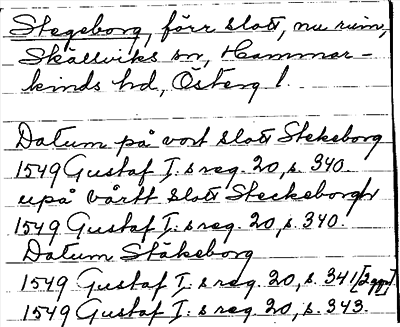 Stegeborg, förr slott, nu ruin,
Skällviks sn, Hammar-
kinds hd, Österg l.
Datum på vort slott Stekeborg
1549 Gustaf I:s reg. 20, s. 340.
upå vårtt slott Steckeborgh
1549 Gustaf I:s reg. 20, s. 340.
Datum Stäkeborg
1549 Gustaf I:s reg. 20, s. 341 [2 ggr]
1549 Gustaf I:s reg. 20, s. 343.